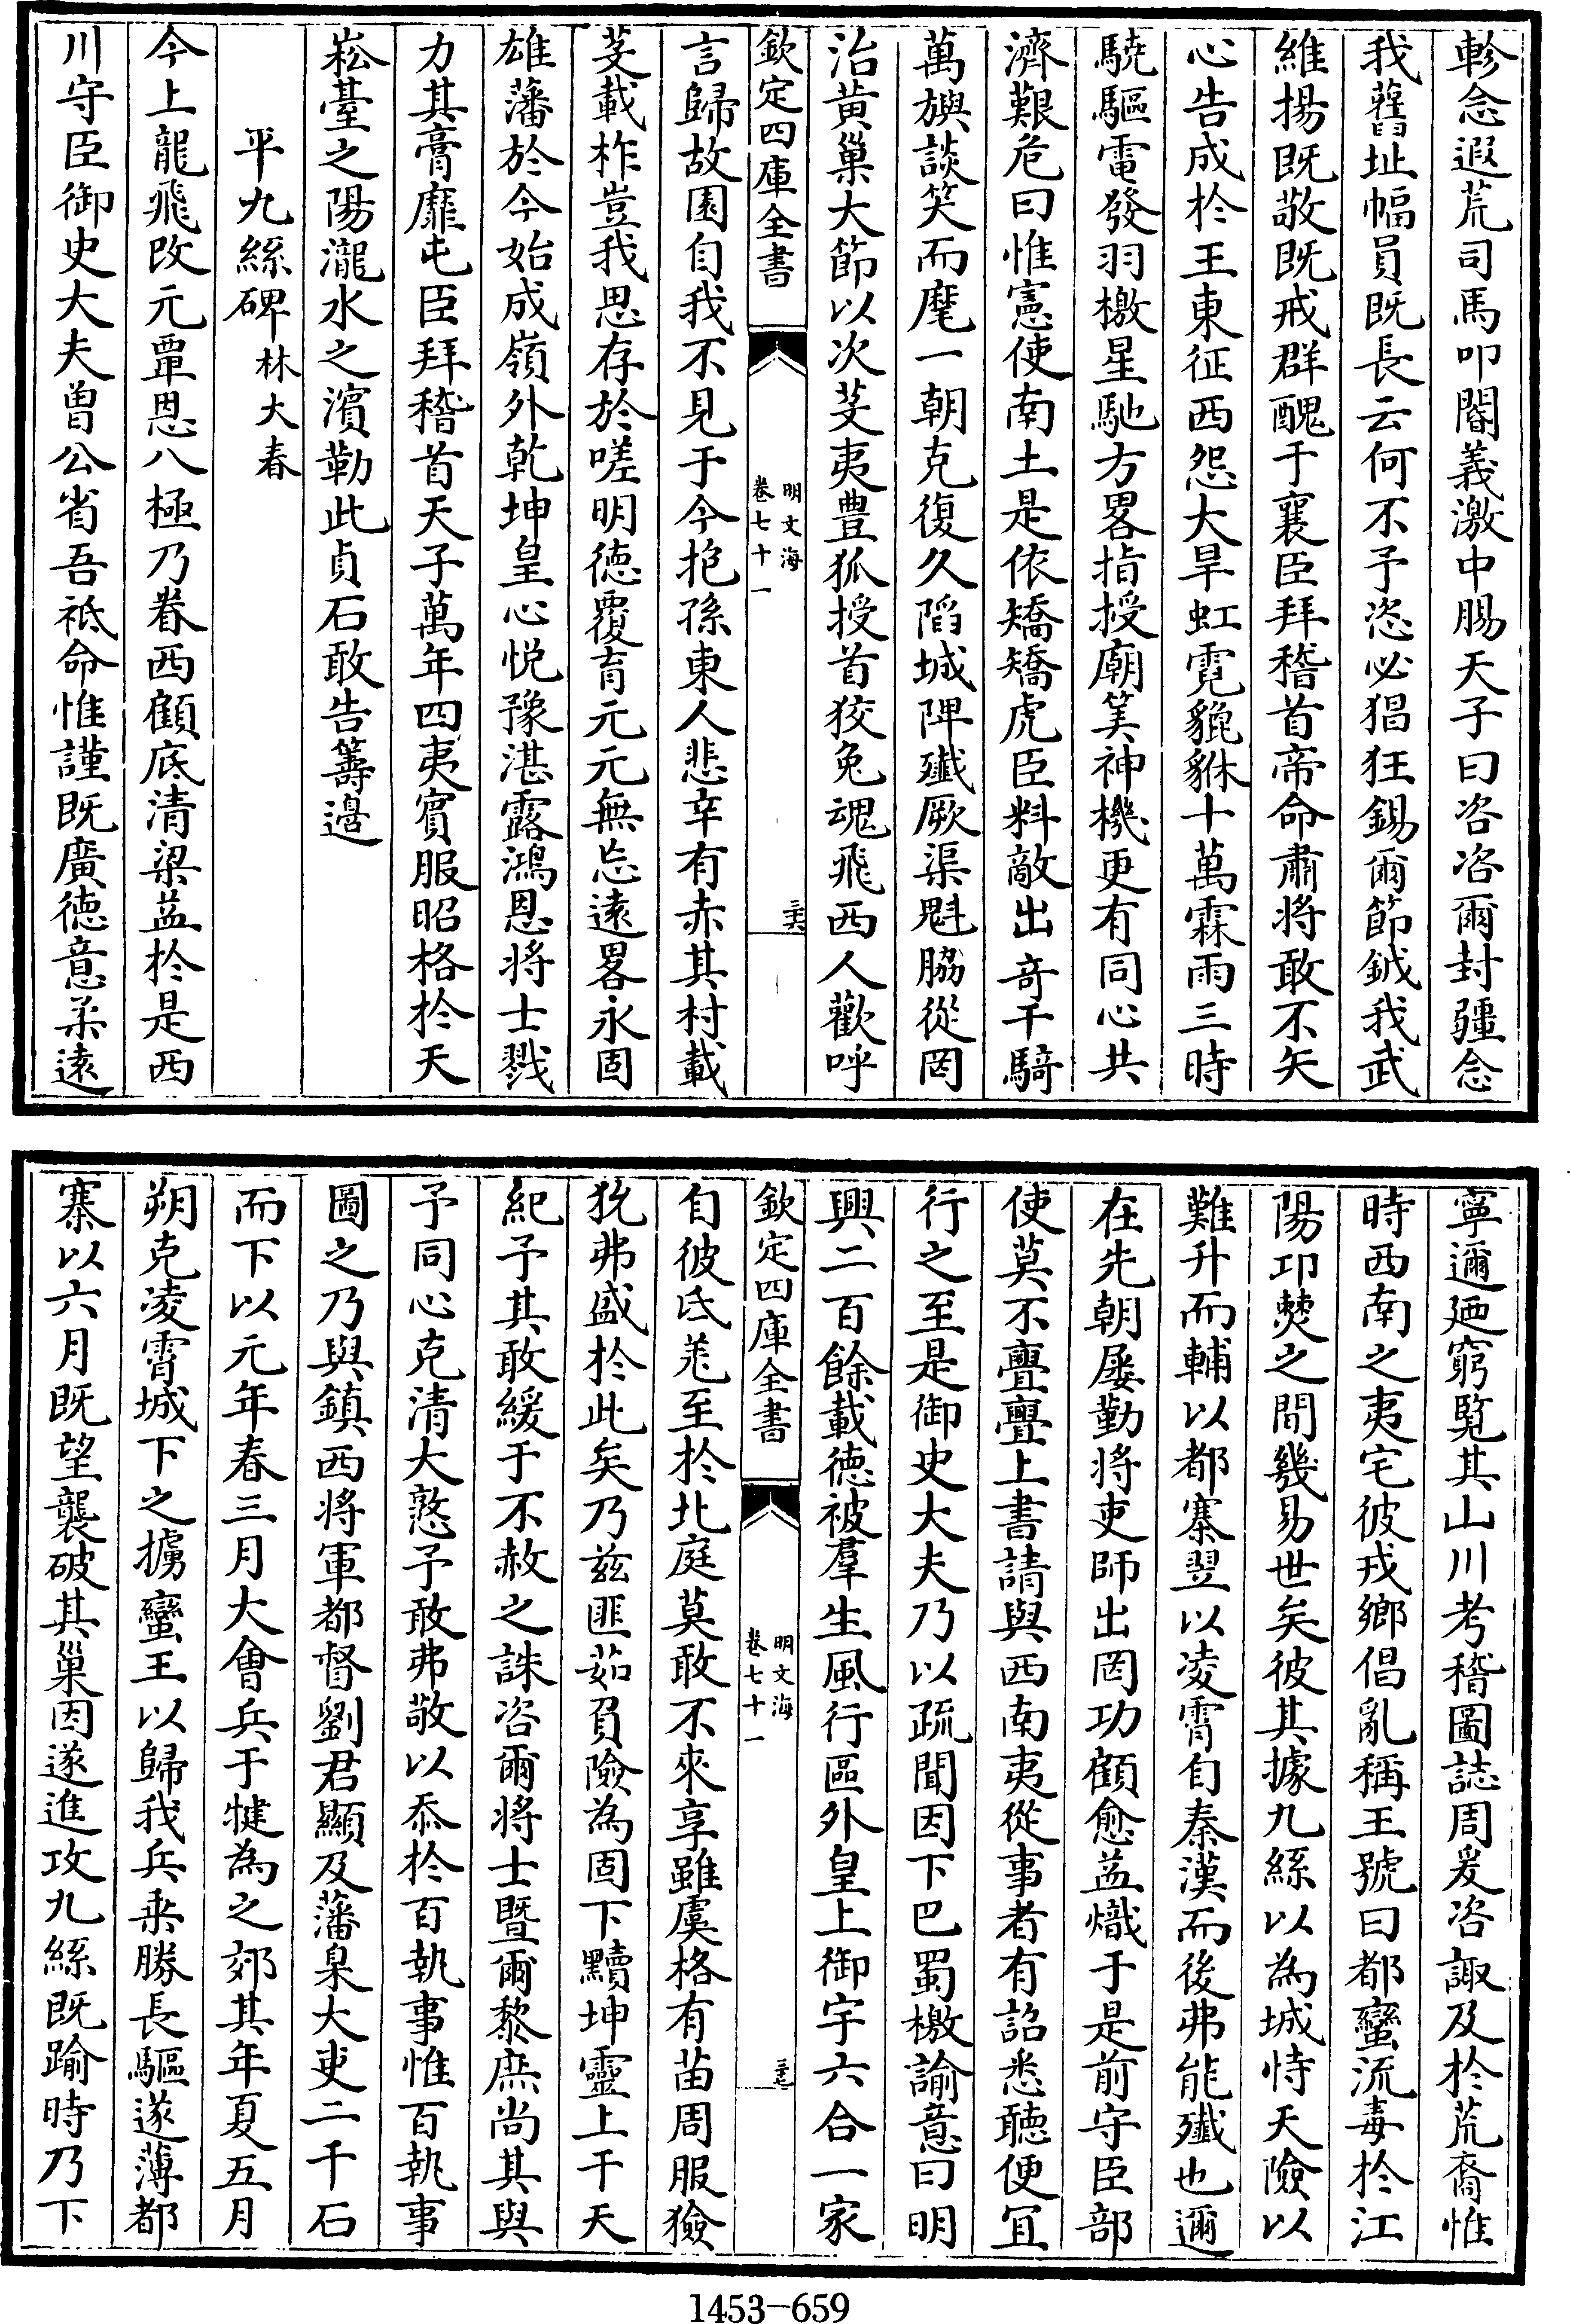 軫念遐荒司馬叩閽義激中腸天子曰咨咨爾封疆念
我舊址幅員既長云何不予恣必猖狂錫爾節鉞我武
維揚既敬既戒群醜于襄臣拜稽首帝命肅將敢不矢
心告成於王東征西怨大旱虹霓貔貅十萬霖雨三時
驍驅電發羽檄星馳方畧指授廟筭神機更有同心共
濟艱危曰惟憲使南土是依矯矯虎臣料敵出奇千騎
萬旟談笑而麾一朝克復久陷城陴殲厥渠魁脇從罔
治黄巢大節以次芟夷豊狐授首狡兔魂飛西人歡呼
欽定四庫全書
明文海
卷七十一
三六
言歸故園自我不見于今抱孫東人悲辛有赤其村載
芟載柞豈我思存於嗟明德覆育元元無忘遠畧永固
雄藩於今始成嶺外乾坤皇心悦豫湛露鴻恩將士戮
力其膏靡屯臣拜稽首天子萬年四夷賓服昭格於天
崧臺之陽瀧水之濱勒此貞石敢告籌邉
平九絲碑林大春
今上龍飛改元覃恩八極乃眷西顧底清梁益於是西
川守臣御史大夫曾公省吾祗命惟謹既廣德意柔遠
寧邇廼窮覧其山川考稽圖誌周爰咨諏及於荒裔惟
時西南之夷宅彼戎鄉倡亂稱王號曰都蠻流毒於江
陽卭僰之間幾易世矣彼其據九絲以為城恃天險以
難升而輔以都寨翌以凌霄自秦漢而後弗能殲也邇
在先朝屡勤將吏師出罔功顧愈益熾于是前守臣部
使莫不亹亹上書請與西南夷從事者有詔悉聽便宜
行之至是御史大夫乃以疏聞因下巴蜀檄諭意曰明
興二百餘載德被羣生風行區外皇上御宇六合一家
欽定四庫全書
明文海
卷七十一
三七
自彼氐羌至於北庭莫敢不來享雖虞格有苗周服獫
狁弗盛於此矣乃兹匪茹負險為固下黷坤靈上干天
紀予其敢緩于不赦之誅咨爾將士暨爾黎庶尚其與
予同心克清大憝予敢弗敬以忝於百執事惟百執事
圖之乃與鎮西將軍都督劉君顯及藩臬大吏二千石
而下以元年春三月大會兵于犍為之郊其年夏五月
朔克凌霄城下之擄蠻王以歸我兵乗勝長驅遂薄都
寨以六月既望襲破其巢因遂進攻九絲既踰時乃下
1453-659